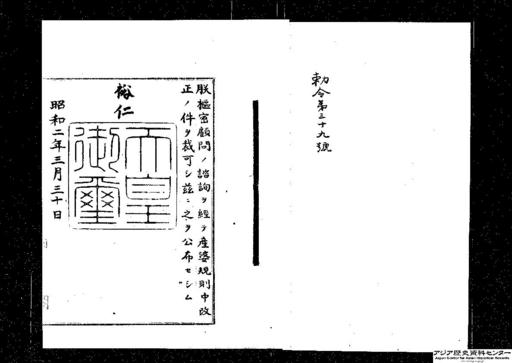 勅令第三十九號
朕樞密顧問ノ諮詢ヲ經テ産婆規則中改
正ノ件ヲ裁可シ茲ニ之ヲ公布セシム
裕仁
天皇
御璽
昭和二年三月三十日
アジア歴史資料センター
Japan Center for Asian Historical Records